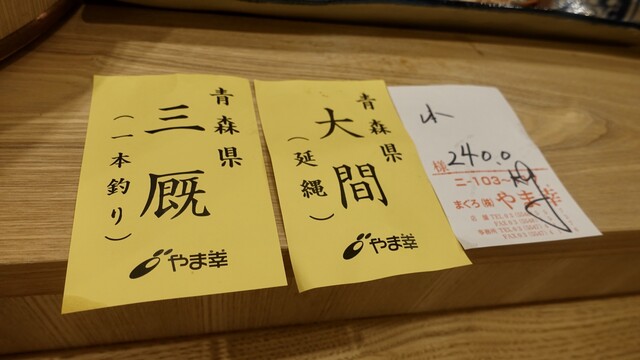 青森県
三厩
（一本釣り）
やま幸
青森県
大間
（延縄）
やま幸
小
240.0
様
ニ-103~
まぐろ（株）やま幸